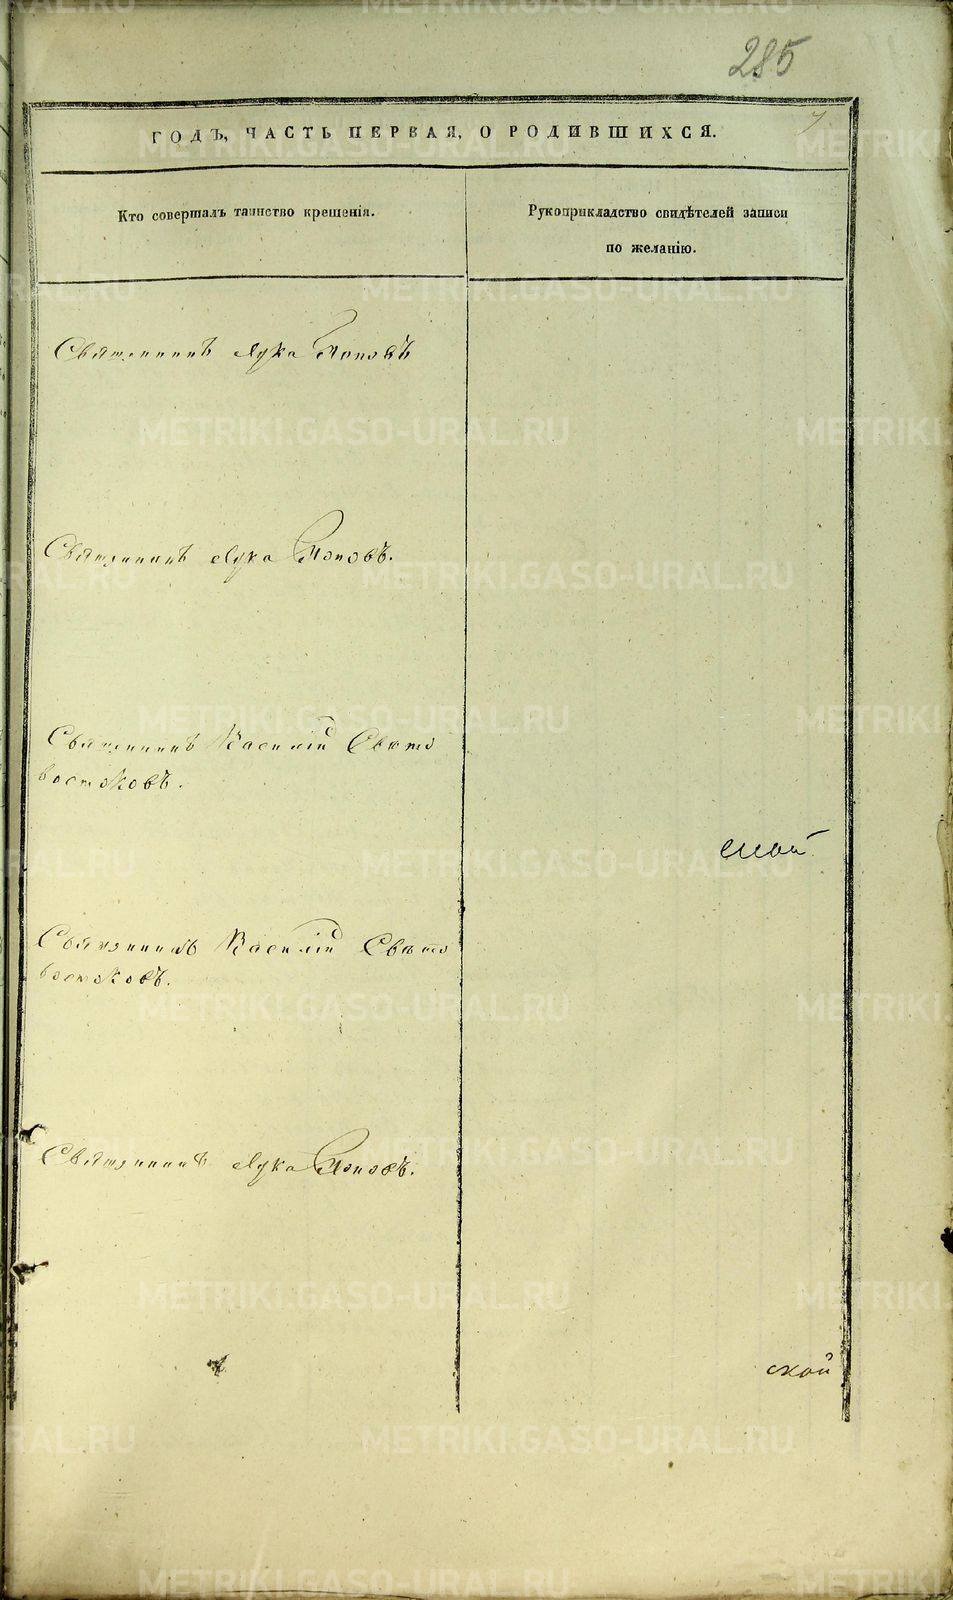 285
7
ГОДЪ, ЧАСТЬ ПЕРВАЯ, О РОДИВШИХСЯ.
Кто совершалъ таинство крещенія.
Рукоприкладство свидѣтелей записи
по желанію.
Священникъ Лука Поповъ
Священникъ Лука Поповъ.
Священникъ Василій Свѣто
востоковъ.
Священникъ Василій Свѣто
востоковъ.
Священникъ Лука Поповъ.
ской
METRIKI.GASO-URAL.RU